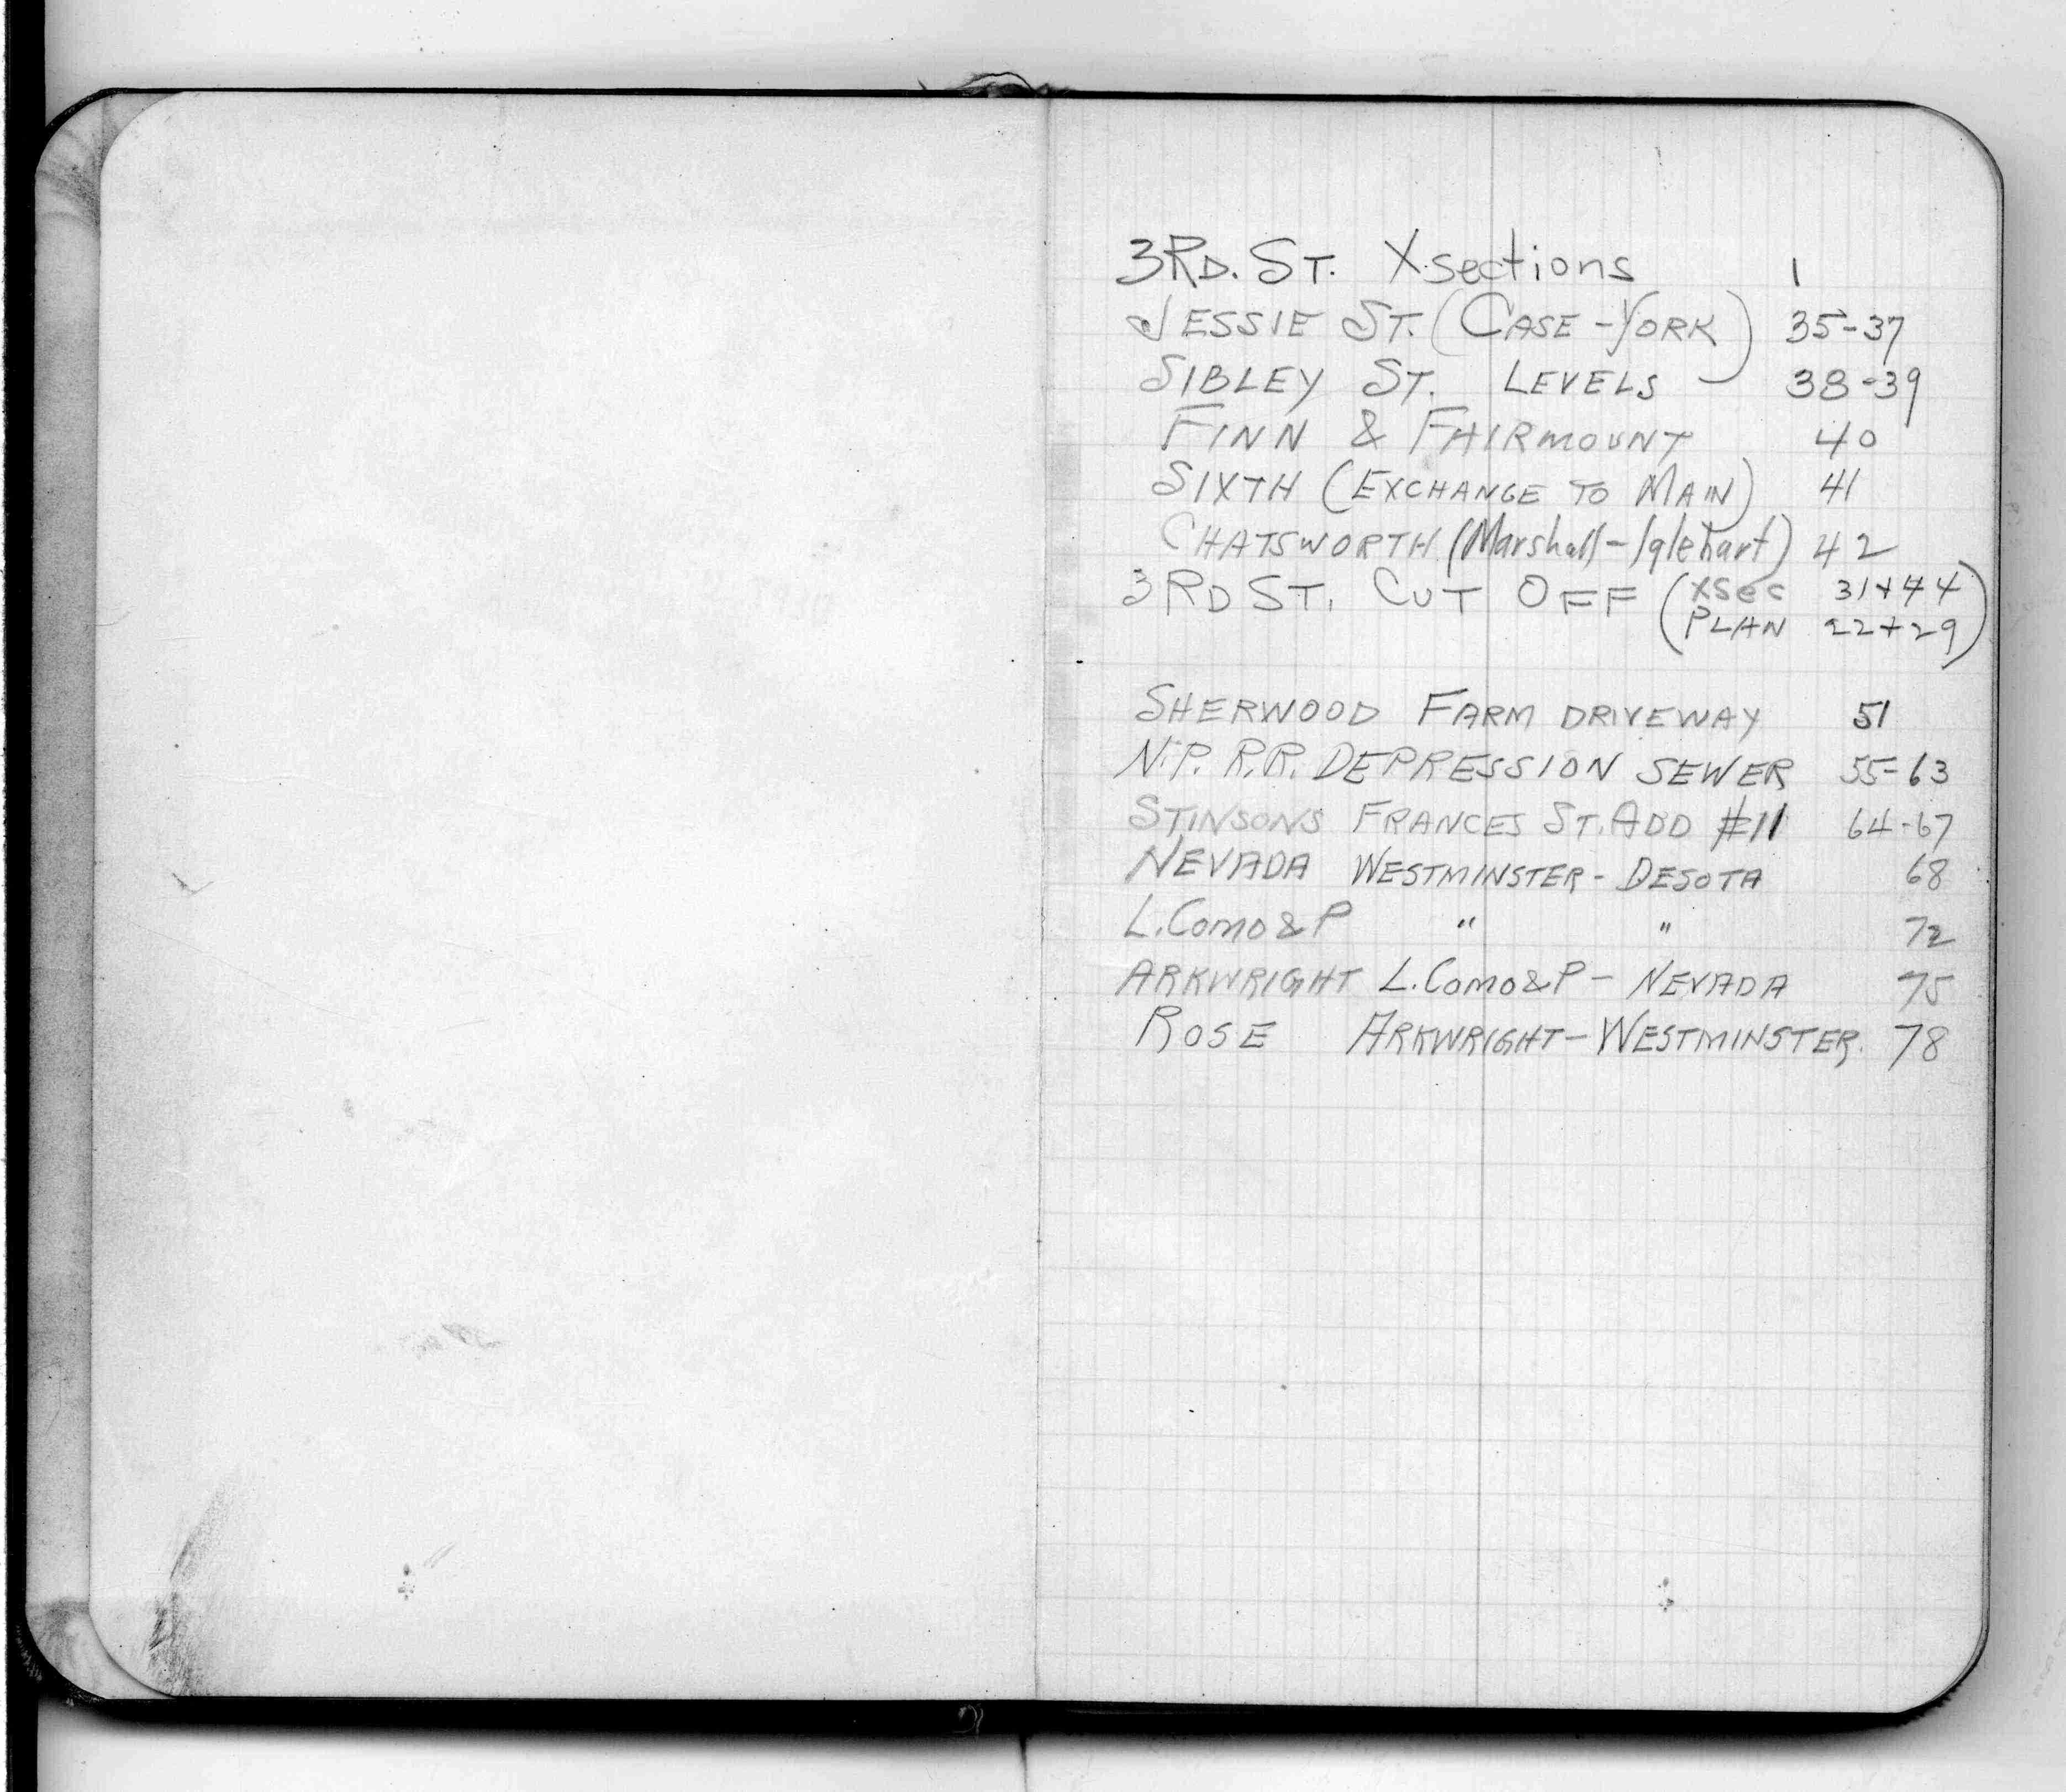 3RD. ST. Xsections 1
JESSIE ST. (CASE-YORK) 35-37
SIBLEY ST. LEVELS 38-39
FINN & FAIRMOUNT 40
SIXTH (EXCHANGE TO MAIN) 41
CHATSWORTH (Marshall-Iglehart) 42
3RD ST. CUT OFF (XSec 31+44
PLAN 22+29)
SHERWOOD FARM DRIVEWAY 51
N.P. R.R. DEPRESSION SEWER 55-63
STINSONS FRANCES ST. ADD #11 64-67
NEVADA WESTMINSTER - DESOTA 68
L. COMO & P " " 72
ARKWRIGHT L. COMO & P - NEVADA 75
ROSE ARKWRIGHT-WESTMINSTER. 78